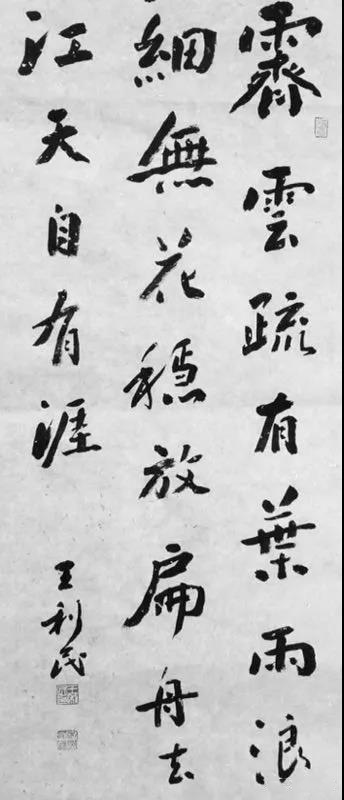 霽雲疏有葉雨浪
細無花穩放扁舟去
江天自有涯
王利民